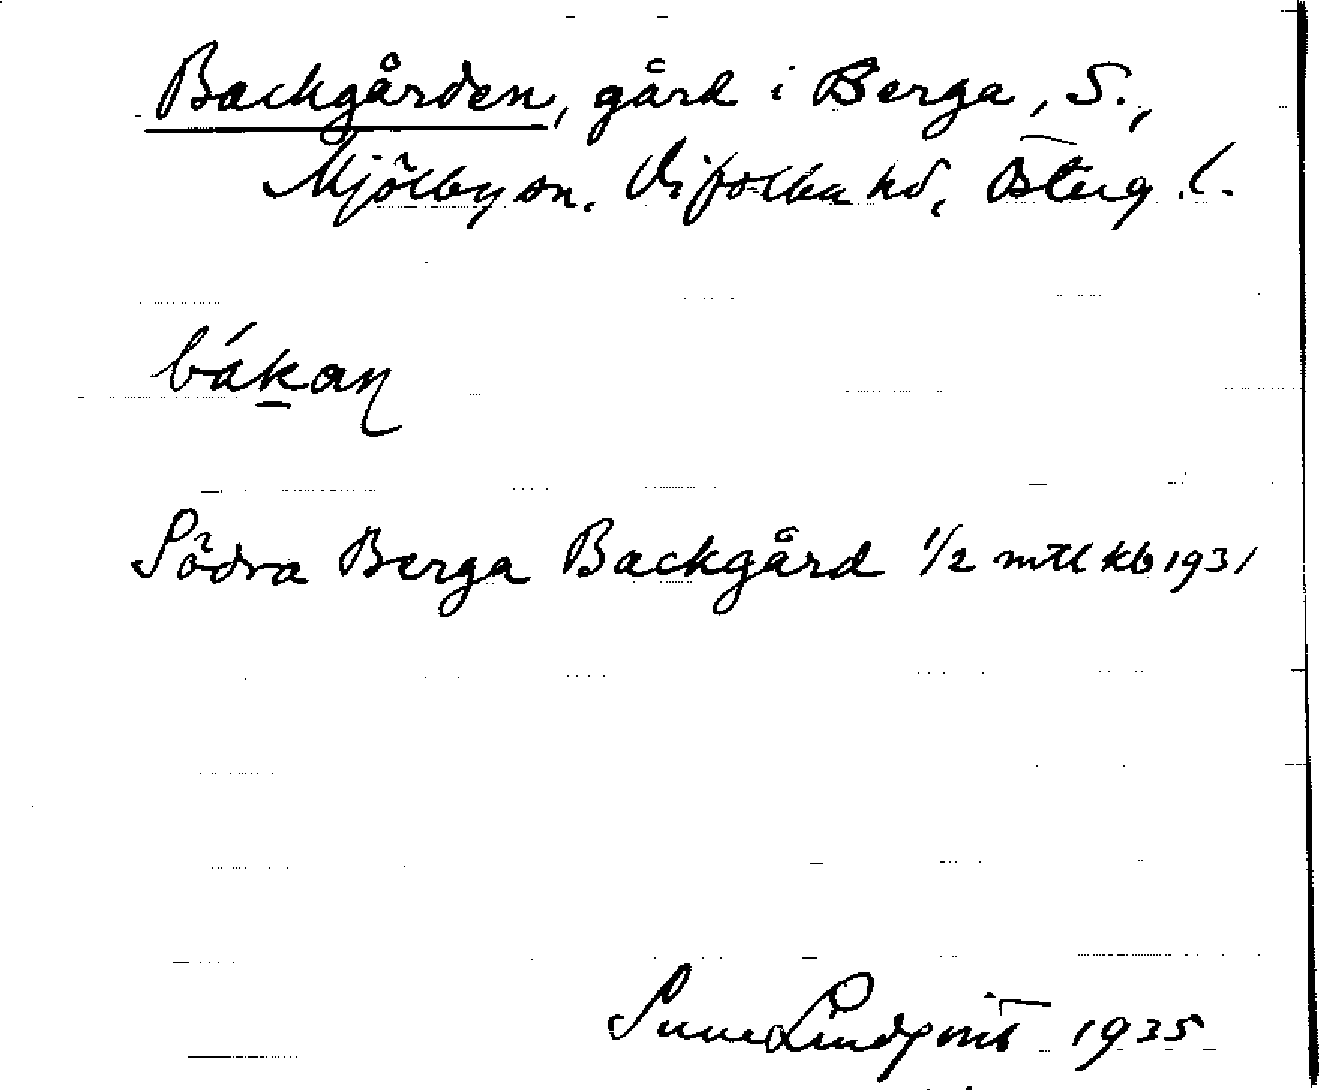 Backgården, gård i Berga, S.,
Mjölby sn. Vifolka hd, Österg. l.
bákaɳ
Södra Berga Backgård 1/2 mtl kb 1931
Sune Lindqvist 1935